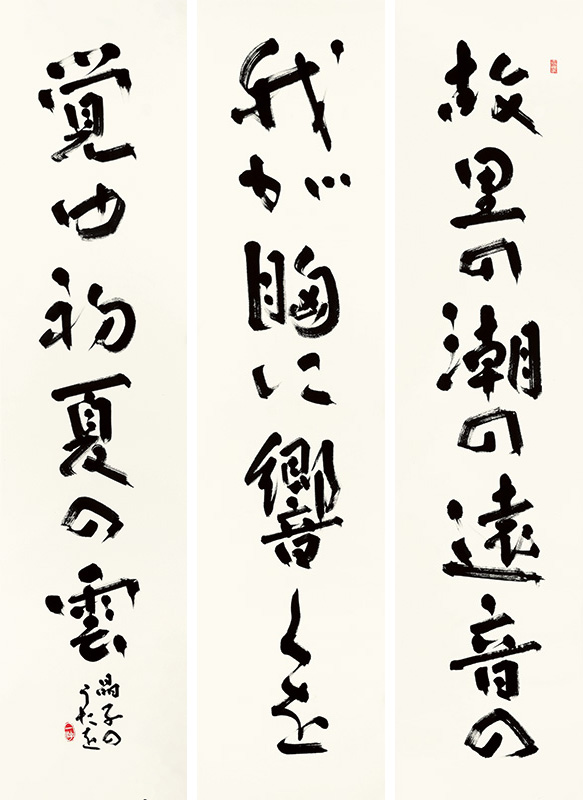 故里の潮の遠音の
我が胸に響くを
覚ゆ初夏の雲
晶子の
うたを